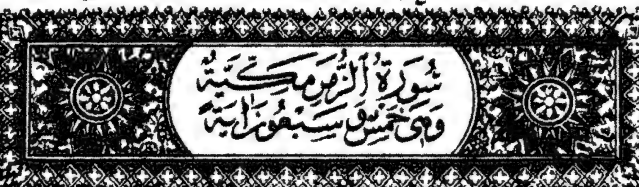 سُورَةُ ٱلزُّمَرِ مَكِّيَّةٌ
وَهِيَ خَمْسٌ وَسَبْعُونَ اٰيَةً